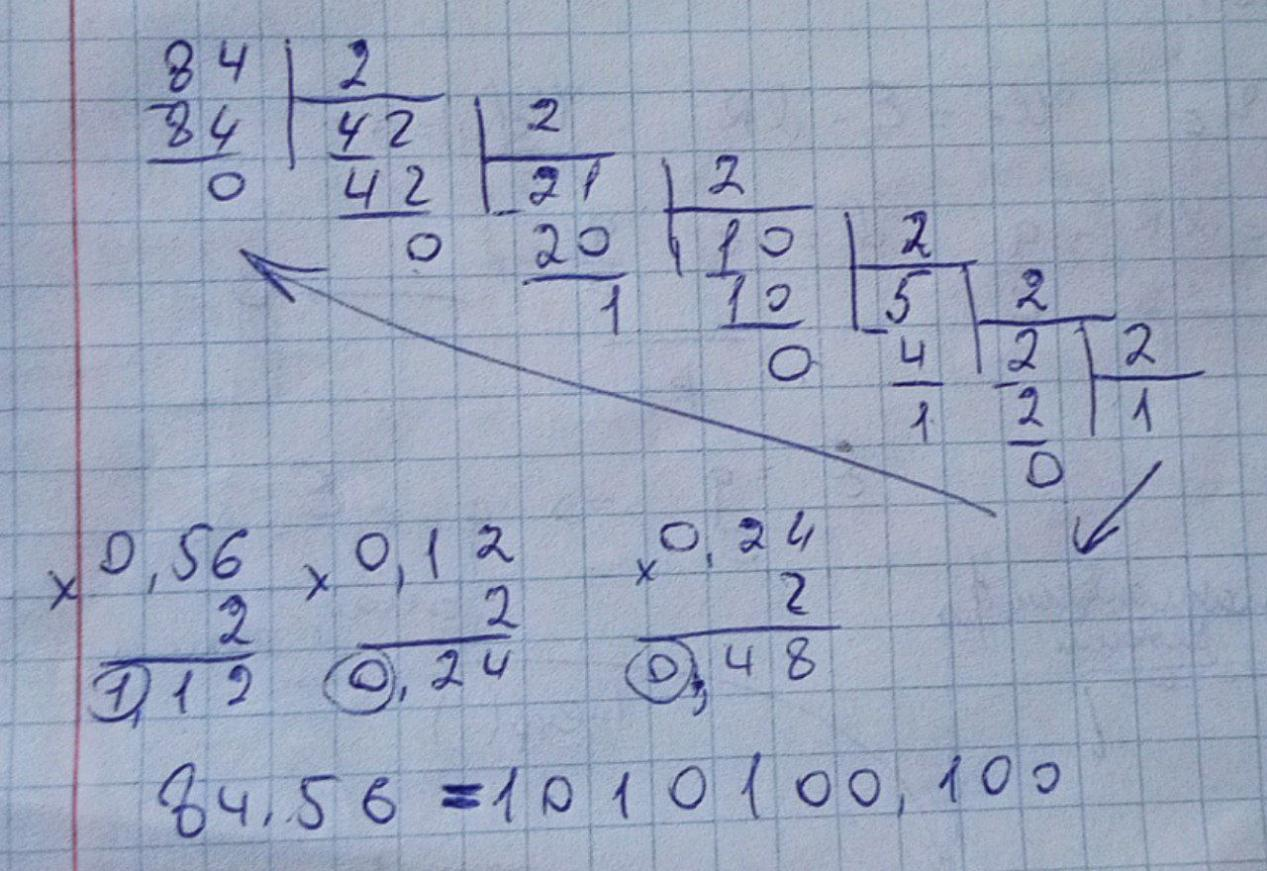 84 2
84 42 2
0 42 21 2
0 20 10 2
1 10 5 2
0 4 2 2
1 2 1
0
× 0,56 × 0,12 × 0,24
2 2 2
1,12 0,24 0,48
84,56 = 1010100,100